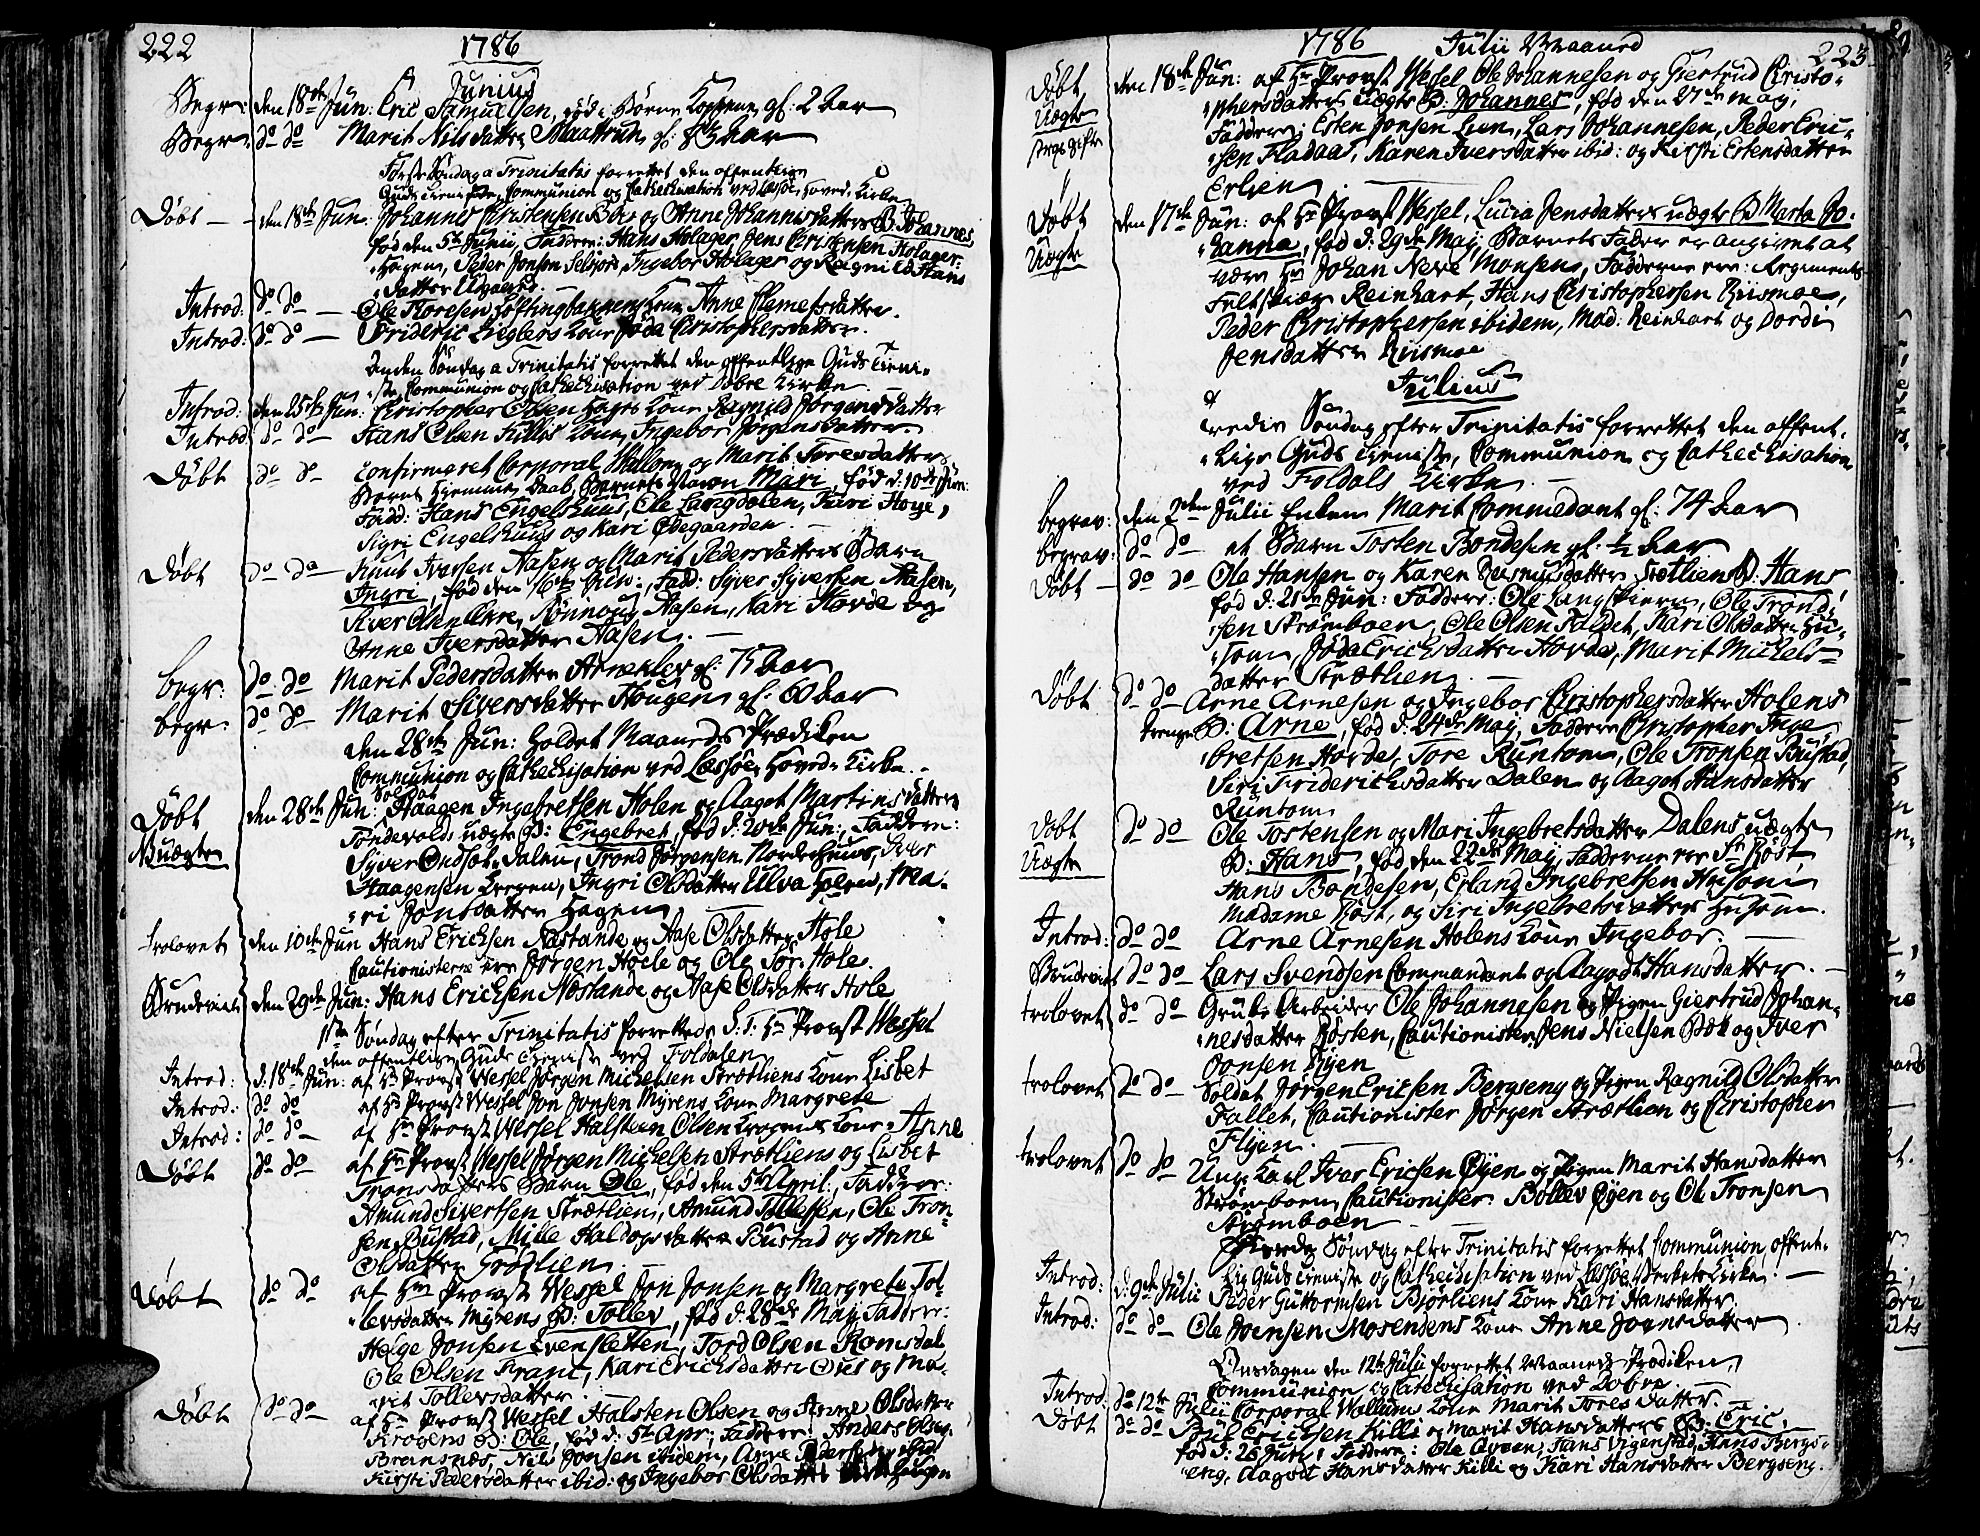 222
1786
Junius
Begr: den 18de Jun: Eric Samuelsen, død i Børne Kopperne gl: 2 Aar
Begr: do do Marit Nilsdatter Maattrun gl: 83 Aar
Første Søndag a Trinitatis forrettet den offentlige
Guds tieniste, Communion og Cathechisation ved Lessøe Hoved-Kirke
Døbt den 18de Jun: Johannes Christensen og Anne Johannisdatters B. Johannes
fød den 5te Junii, Faddere: Hans Holager, Jens Christensen Holager,
Hagem, Peder Jonsen Selsjord, Ingebor Holager og Ragnild Hans
datter
Introd: do do Ole Toresen Kone Anne Clemetsdatter.
Introd: do do Frideric Zieglers Kone Christophersdatter.
Anden Søndag a Trinitatis forrettet den offentlige Guds Tieni-
ste Communion og Cathechisation ved Dovre Kirke
Introd: den 25de Jun: Christopher Olsen Kone Ragnild Jørgensdatter
Introd: do do Hans Olsen Killes Kone, Ingebor Jørgensdatter
Døbt do do Confirmeret Corporal Wallom og Marit Toresdatters
Barns Hiemme Daab, Barnets Navn Mari, fød d: 10de Jun:
Fadd: Hans Engelshuus, Ole Langdalen, Turi Hoye,
Sigri Engelshuus og Kari Ødegaarden
Døbt do do Knud Ivarsen Aasen og Marit Pedersdatters Barn
Ingri, fød den 16de Fadd: Syver Syversen Aasen,
Rønnoug Aasen, Kari Horde og
Anne Iversdatter Aasen.
begr: do do Marit Pedersdatter gl: 75 Aar
begr: do do Marit Siversdatter Hougen gl: 60 Aar
den 28de Jun: holdet Maaneds Prædiken
Communion og Cathechisation ved Lessøe Hoved-Kirke.
Døbt den 28de Jun: Soldat Haagen Ingebretsen Holen og Aagot Martinsdatters
uægte Tøndevolds uægte B: Engebret, fød d: 20de Jun:, Faddere:
Syver Dalen, Trond Jørgensen Nordre Huus,
Haagensen Hergen, Ingri Olsdatter Ulva Holen, Ma-
ri Jonsdatter Hagen
trolovet den 10de Jun Hans Ericksen Næstande og Aase Olsdatter Hole
Cautionisterne ere Jørgen Hoele og Ole Tor: Hole.
Brudeviet den 29de Jun: Hans Ericksen Næstande og Aase Olsdatter Hole
1ste Søndag efter Trinitatis forrettede S: T: Hr Provst Wessel
den offentlige Guds tieniste ved Foldalen
Introd: d: 18de Jun: af Hr Provst Wessel Jørgen Michelsen Strætliens Kone Lisbet
Introd: do do af Hr Provst Wessel Jon Jonsen Myrens Kone Margrete
Introd: do do af Hr Provst Wessel Halsteen Olsen Krogens Kone Anne
Døbt do do af Hr Provst Wessel Jørgen Michelsen Strætliens og Lisbet
Tronsdatters Barn Ole, fød den 5te April, Faddere:
Amund Sivertsen Strætlien, Amund Tollefsen, Ole Tron-
sen Bustad, Mille Haldogsdatter Bustad og Anne
Olsdatter Grødlien
Døbt do do af Hr Provst Wessel Jon Jonsen og Margrete Tol-
levsdatter Myrens B: Tollev, fød d: 28de Maij Faddere:
Helge Jonsen Evensletten, Tord Olsen Romsdal
Ole Olsen Franc, Kari Ericksdatter og Ma-
rit Tollevsdatter
Døbt do do af Hr Provst Wessel Halsten Olsen og Anne Olsdatter
Krogens B: Ole, fød d: 5te Apr: Faddere: Anders
Bransnæs, Nils Jonsen ibidem, Arne Pedersen ibid:
Kirsti Pedersdatter ibid: og Ingebor Olsdatter
1786 Julii Maaned 223
Døbt den 18de Jun: af Hr Provst Wessel Ole Johannesen og Giertrud Christo-
Uægte phersdatters uægte B: Johannes, fød den 27de Maij,
Faddere: Esten Jonsen Lien, Lars Johannesen, Peder Eric-
sen Fladaas, Karen Iversdatter ibid: og Kirsti Estensdatter
Erlien
Døbt den 17de Jun: af Hr Provst Wessel, Lucia Jensdatters uægte B Marta Jo-
Uægte hanna, fød d: 29de Maij, Barnets Fader er angivet at
være Hr Johan Neve Monsens, Fadderne ere: Regiments
Feltskiær Reinhart, Hans Christophersen Riismoe,
Peder Christophersen ibidem, Mad: Reinhart og Dordi
Jensdatter Riismoe
Julius
Tredie Søndag efter Trinitatis forrettet den offent-
lige Guds tieniste, Communion og Cathechisation
ved Foldals Kirke
begrav: den 2den Julii Enken Marit Commedant gl: 74 Aar
begrav: do do et Barn Torsten Bondesen gl: 1/2 Aar
Døbt do do Ole Hansen og Karen Rasmusdatter Strætliens B: Hans
fød d: 21de Jun: Faddere: Ole Langskiern, Ole Trond-
sen Strømboen, Ole Olsen Taldet, Kari Olsdatter Hu-
som, Ericksdatter Horde, Marit Michels-
datter Strætlien
Døbt do do Arne Arnesen og Ingebor Christophersdatter Holens
B: Arne, fød d: 24de Maij, Faddere Christopher Inge-
bretsen Horde, Tore Runtom, Ole Tronsen Bustad,
Siri Friderichsdatter Dalen og Aagot Hansdatter
Runtom
Døbt do do Ole Tostensen og Mari Ingebretsdatter Dalens uægte
Uægte B: Hans, fød den 22de Maij, Fadderne ere Sr Røst
Hans Bondesen, Erland Ingebretsen Husom
Madame Røst, og Siri Ingebretsdatter Husom.
Introd: do do Arne Arnesen Holens Kone Ingebor.
Brudeviet do do Lars Svendsen Commandant og Aagodt Hansdatter.
trolovet do do Grube Arbeider Ole Johannesen og Pigen Giertrud Johan-
nesdatter Røsten, Cautionister Jens Nielsen Bæk og Iver
Jonsen Øyen
trolovet do do Soldat Jørgen Ericsen Bergseng og Pigen Ragnild Olsdatter
Dallet, Cautionister Jørgen Strætlien og Christopher
Flyen.
trolovet do do Ung Karl Ivar Ericsen Øyen og Pigen Marit Hansdatter
Strømboen, Cautionister Bøllev Øyen og Ole Tronsen
Strømboen
Fierde Søndag efter Trinitatis forrettet Communion, offent-
lig Guds tieniste og Cathechisation ved Lessøe Verkets Kirke.
Introd: d: 9de Julii Peder Guttormsen Bjørliens Kone Kari Hansdatter.
Introd: do do Ole Joensen Mosendens Kone Anne Joensdatter
Onsdagen den 12te Julii forrettet Maaneds Prædiken,
Communion og Catechisation ved Dovre.
Introd do 12te Julii Corporal Wallums Kone Marit Toresdatter
Døbt do do Poul Ericksen Killi og Marit Hansdatters B: Eric,
fød d: 26 Jun: Faddere: Ole Hans Vigenstad, Hans Bergs-
eng, Aagodt Hansdatter Killi og Kari Hansdatter Bergseng.